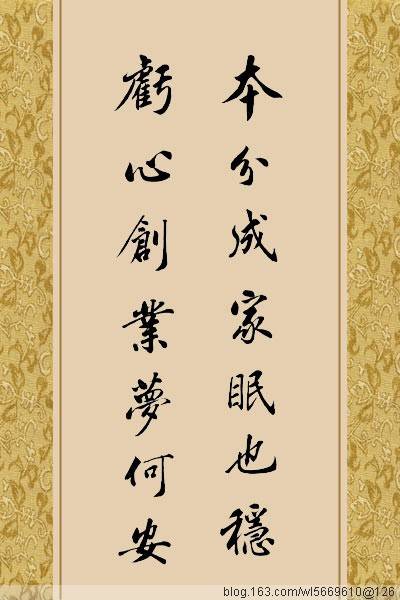 本分成家眠也穩
虧心創業夢何安
blog.163.com/wl5669610@126